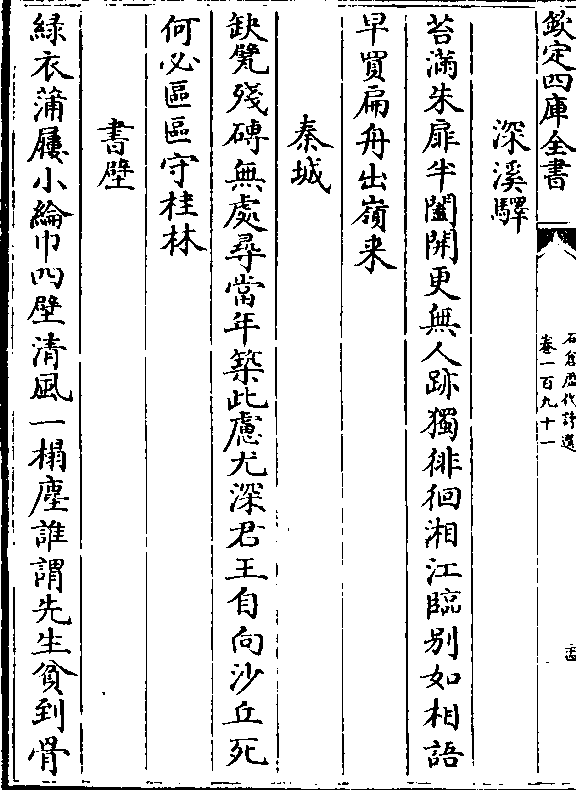 欽定四庫全書
石倉歷代詩選
卷一百九十一
深溪驛
苔滿朱扉半闔開更無人跡獨徘徊湘江臨别如相語
早買扁舟出嶺来
秦城
缺甓殘磚無處尋當年築此慮尤深君王自向沙丘死
何必區區守桂林
書壁
緑衣蒲屨小綸巾四壁清風一榻塵誰謂先生貧到骨